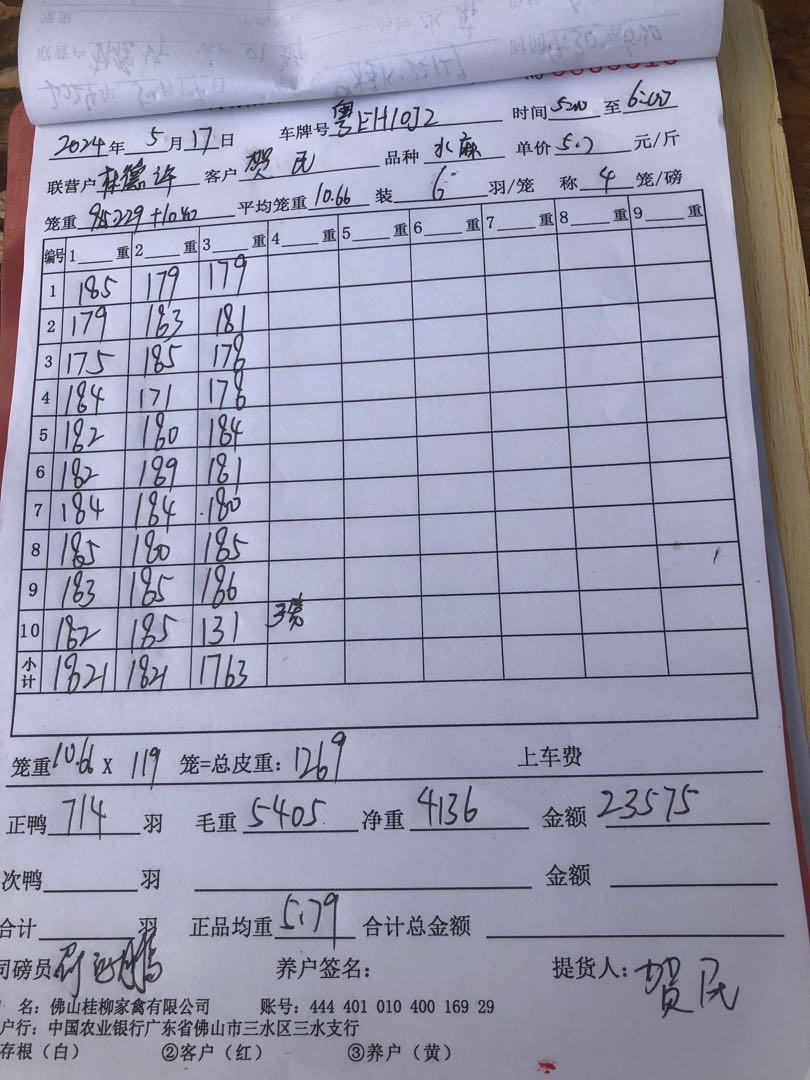 2024年 5月17日 车牌号 粤EH10J2 时间 5:00 至 6:00
联营户 客户 贺民 品种 水麻 单价 5.7 元/斤
笼重 平均笼重 10.66 装 6 羽/笼 称 4 笼/磅
编号 1 重 2 重 3 重 4 重 5 重 6 重 7 重 8 重 9 重
1 185 179 179
2 179 183 181
3 175 185 178
4 184 171 178
5 182 180 184
6 182 189 181
7 184 184 180
8 185 180 185
9 183 185 186
10 182 185 131 3笼
小计 1821 1821 1763
笼重 10.66 X 119 笼=总皮重: 1269 上车费
正鸭 714 羽 毛重 5405 净重 4136 金额 23575
次鸭 羽 金额
合计 羽 正品均重 5.79 合计总金额
司磅员 养户签名: 提货人: 贺民
名: 佛山桂柳家禽有限公司 账号: 444 401 010 400 169 29
户行: 中国农业银行广东省佛山市三水区三水支行
存根(白) ②客户(红) ③养户(黄)